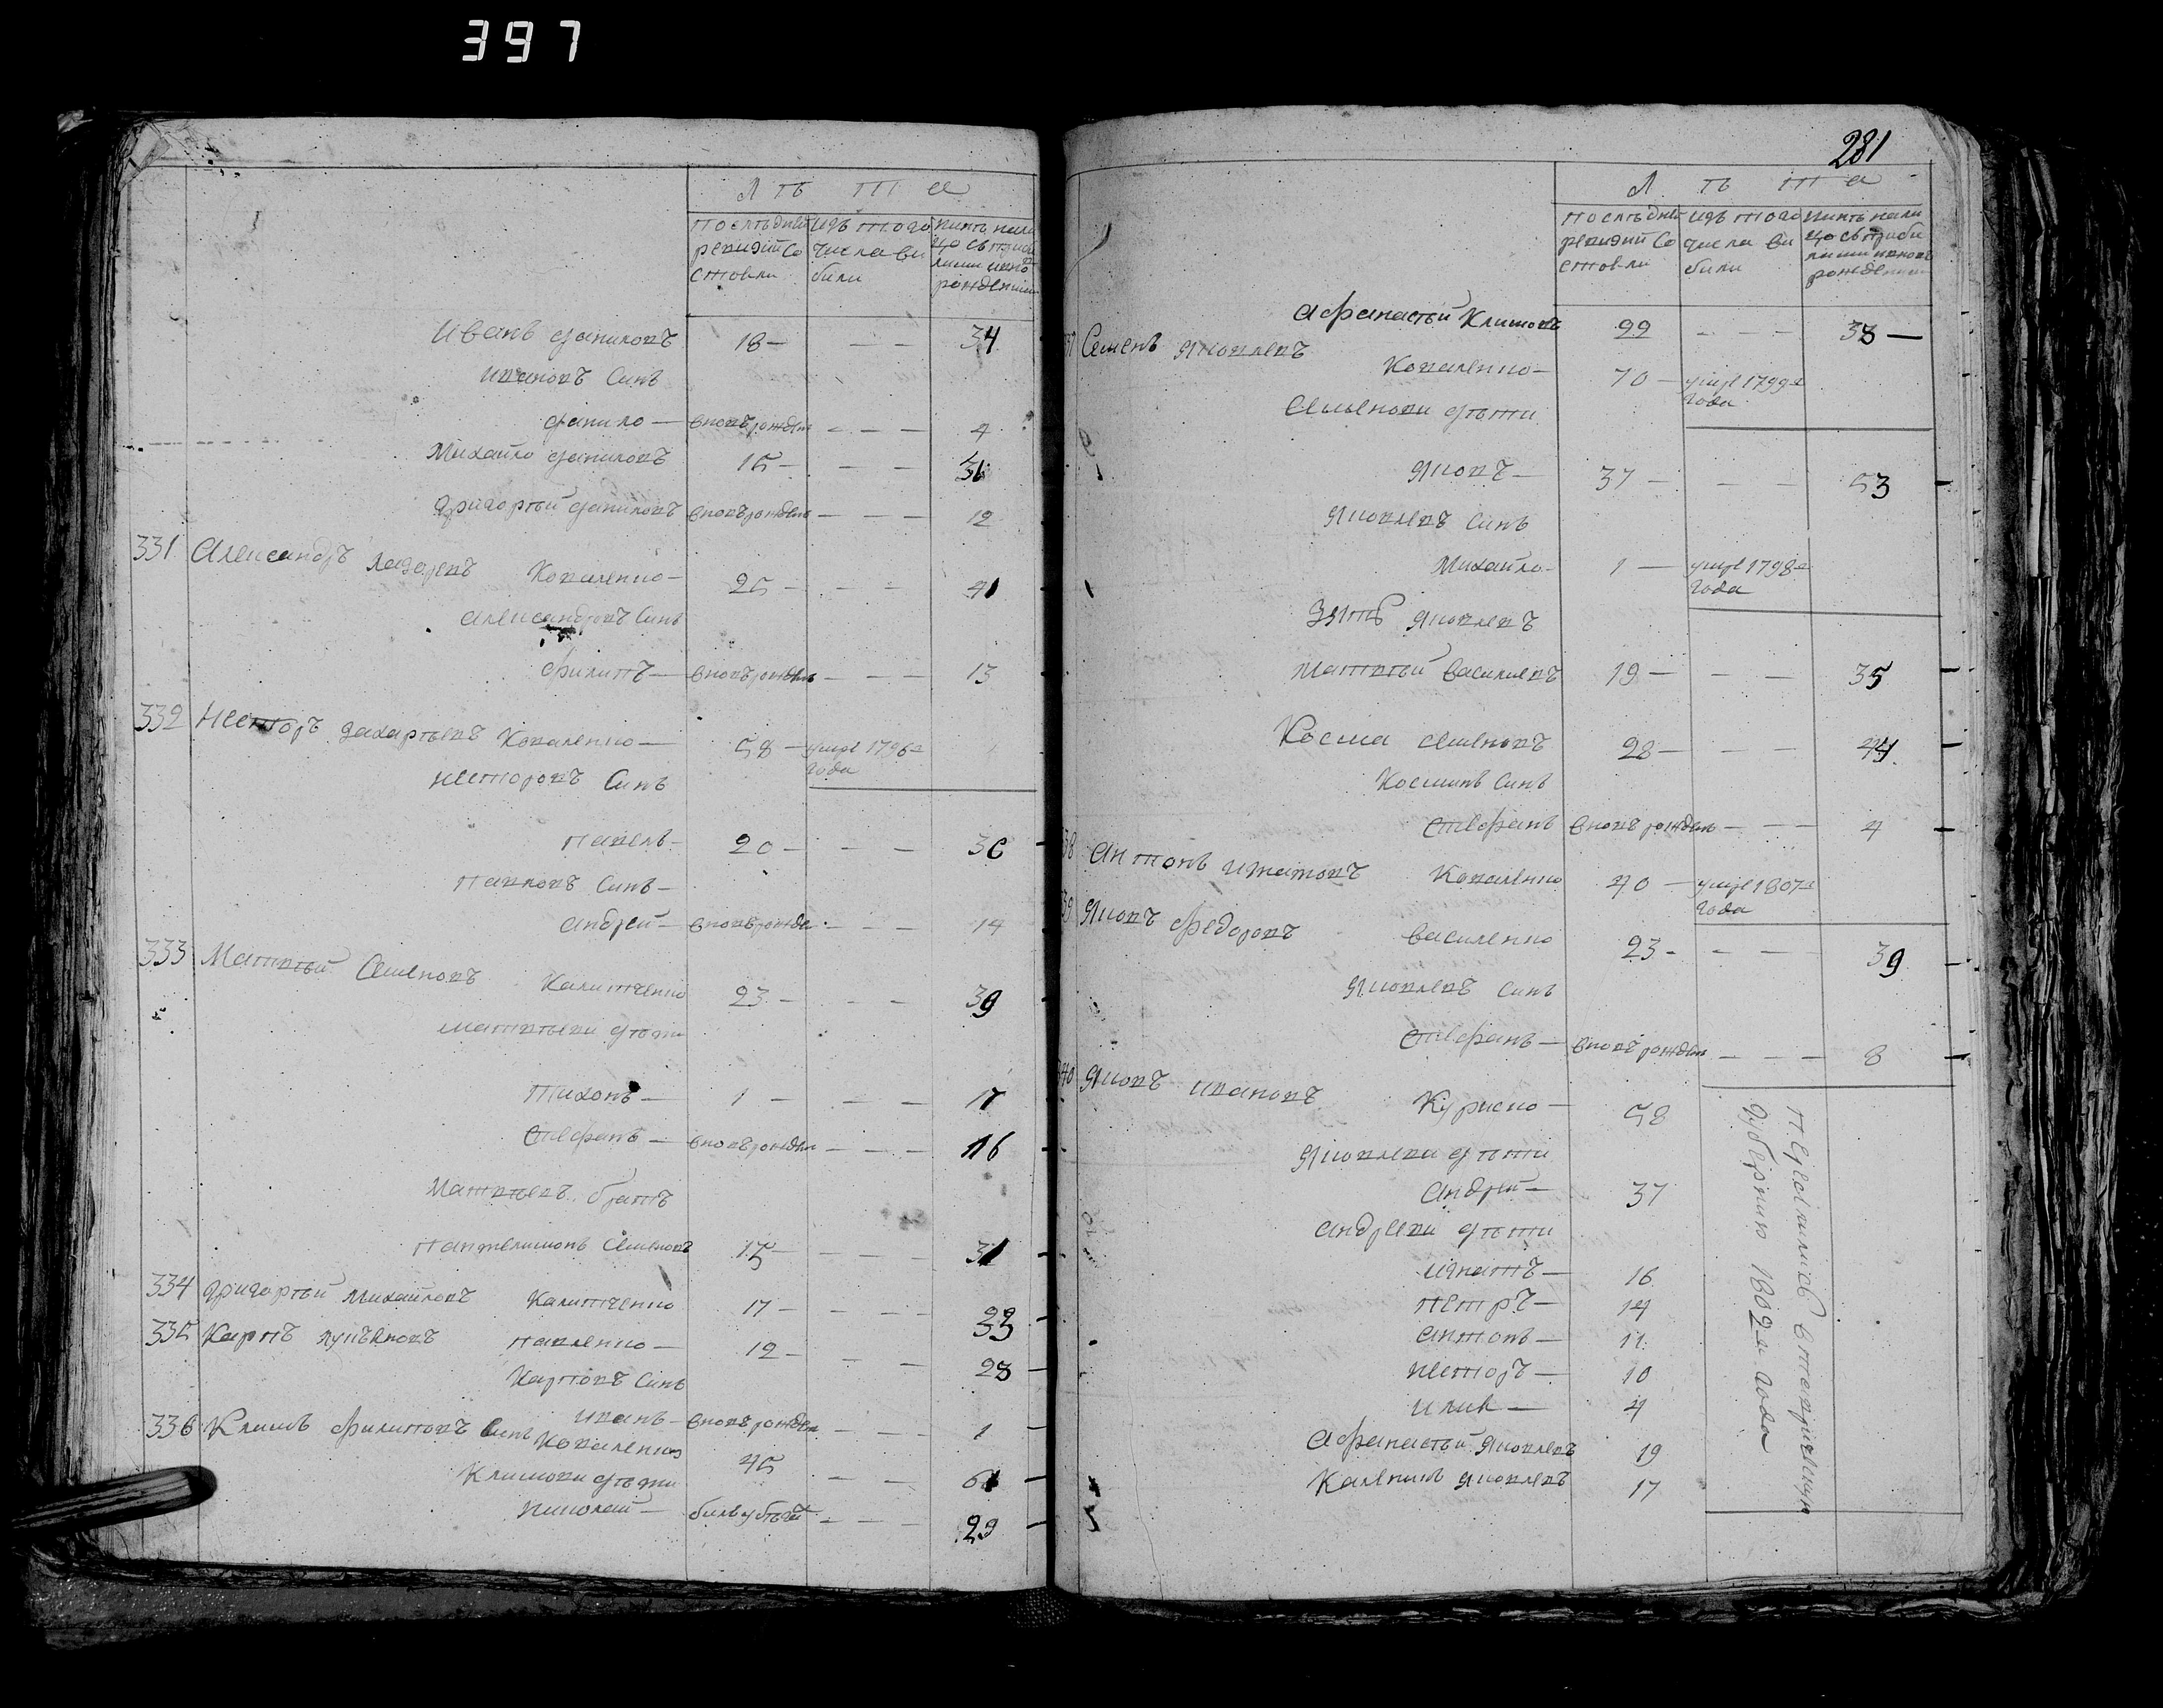 397
Лѣта
последней ревизии состояли
изъ того числа выбыли
нынѣ налицо съ прибылыми и новорожденными
Иванъ Даниловъ 18 — — — 34
Ивановъ Синъ
Данило — вновь рожден — — — 4
Михайло Даниловъ 15 — — — 31
Григорій Даниловъ вновь рожден — — — 12
331 Александръ Лазаревъ Коваленко — 25 — — — 41
Александровъ Синъ
Филипъ — вновь рожден — — — 13
332 Несторъ Захаріевъ Коваленко — 58 — умре 1796го года
Несторовъ Синъ
Павелъ — 20 — — — 36
Павловъ Синъ —
Андрей — вновь рожден — — — 14
333 Матвѣй Семеновъ Калитченко 23 — — — 39
Матвѣеви дѣти
Тихонъ — 1 — — — 17
Стефанъ — вновь рожден — — — 16
Матвѣевъ братъ
Пантелимонъ Семеновъ 15 — — — — 31
334 Григорій Михайловъ Калитченко 17 — — — — 33
335 Карпъ Лукъяновъ Павленко — 12 — — — 28
Карповъ Синъ
Иванъ — вновь рожден — — — 1
336 Климъ Филиповъ Синъ Коваленко 45 — — 61
Климови дѣти
Николай — билъ убѣгѣ — — — 29
281
Лѣта
последней ревизии состояли
изъ того числа выбили
нынѣ налицо съ прибилими и новорожденними
Афанасій Климовъ 22 — — — 38 —
37 Семенъ Яковлевъ Коваленко — 70 — умре 1799го года
Семенови дѣти
Яковъ — 37 — — — 53
Яковлевъ Синъ
Михайло — 1 — умре 1798го года
Зять Яковлевъ
Матвѣй Василиевъ 19 — — — 35
Косма Семеновъ 28 — — — 44
Косминъ Синъ
Стефанъ вновь рожден — — — 4
38 Антонъ Игнатовъ Коваленко 40 — умре 1807го года
39 Яковъ Федоровъ Василенко 23 — — — 39
Яковлевъ Синъ
Стефанъ — вновь рожден — — — 8
340 Яковъ Ивановъ Курисно — 58
Яковлеви дѣти
Андрей — 37
Андрееви дѣти
Игнатъ — 16
Петръ — 14
Антонъ — 11
Несторъ — 10
Илия — 4
Афанасій Яковлевъ 19
Каленикъ Яковлевъ 17
Переселились в таврическую
губернию 1802го года